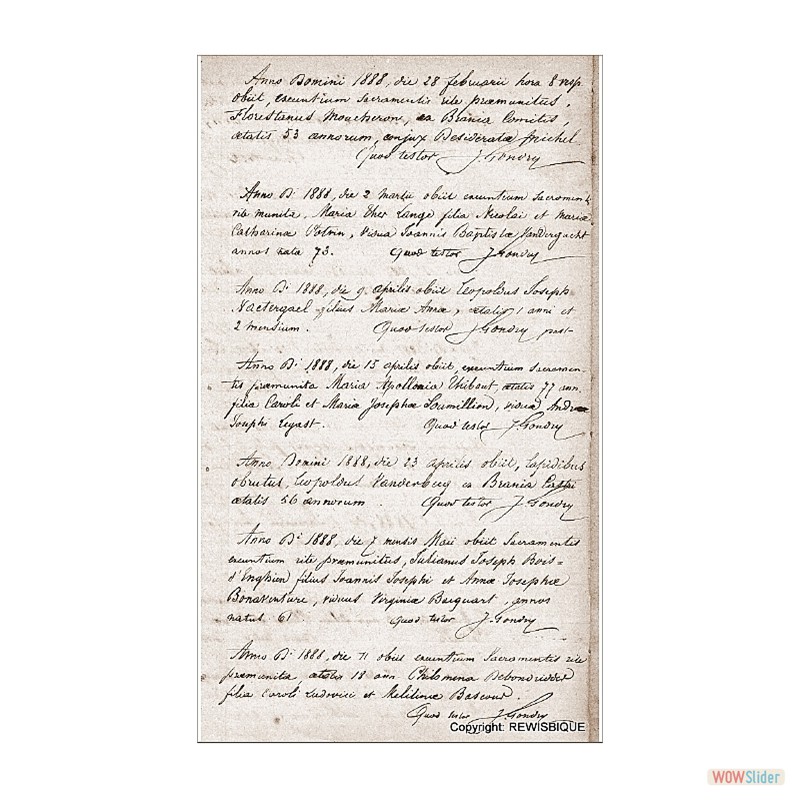 Anno Domini 1888, die 28 februarii hora 8 vesp.
obiit, exeuntium Sacramentis rite praemunitus,
Florestanus Moucheron, ex Brania Comitis,
aetatis 53 annorum, conjux Desideratae Michel
Quod testor J. Gondry
Anno Di 1888, die 2 martii obiit exeuntium Sacrament
rite munita, Maria Ther Lange filia Nicolai et Mariae
Catharinae Potvin, vidua Joannis Baptistae Vandergucht
annos nata 73. Quod testor J. Gondry
Anno Di 1888, die 9 aprilis obiit Leopoldus Joseph
Nactergael filius Mariae Annae, aetatis 1 anni et
2 mensium. Quod testor J. Gondry past
Anno Di 1888, die 15 aprilis obiit, exeuntium Sacramen-
tis praemunita Maria Apollonia Thibaut, aetatis 77 ann
filia Caroli et Mariae Josephae Soumillion, vidua Andreae
Josephi Legast. Quod testor J. Gondry
Anno Domini 1888, die 23 aprilis obiit, lapidibus
obrutus, Leopoldus Vanderbecq ex Brania Castri
aetatis 56 annorum Quod testor J. Gondry
Anno Di 1888, die 7 mensis Maii obiit Sacramentis
exeuntium rite praemunitus, Julianus Joseph Bois-
d'Enghien filius Joannis Josephi et Annae Josephae
Bonaventure, viduus Virginiae Bacquart, annos
natus 61. Quod testor J. Gondry
Anno Di 1888, die 11 obiit exeuntium Sacramentis rite
praemunita, aetatis 18 ann Philomena Debondridder
filia Caroli Ludovici et Melitinae Bascour.
Quod testor J. Gondry
Copyright: REWISBIQUE
WOWSlider